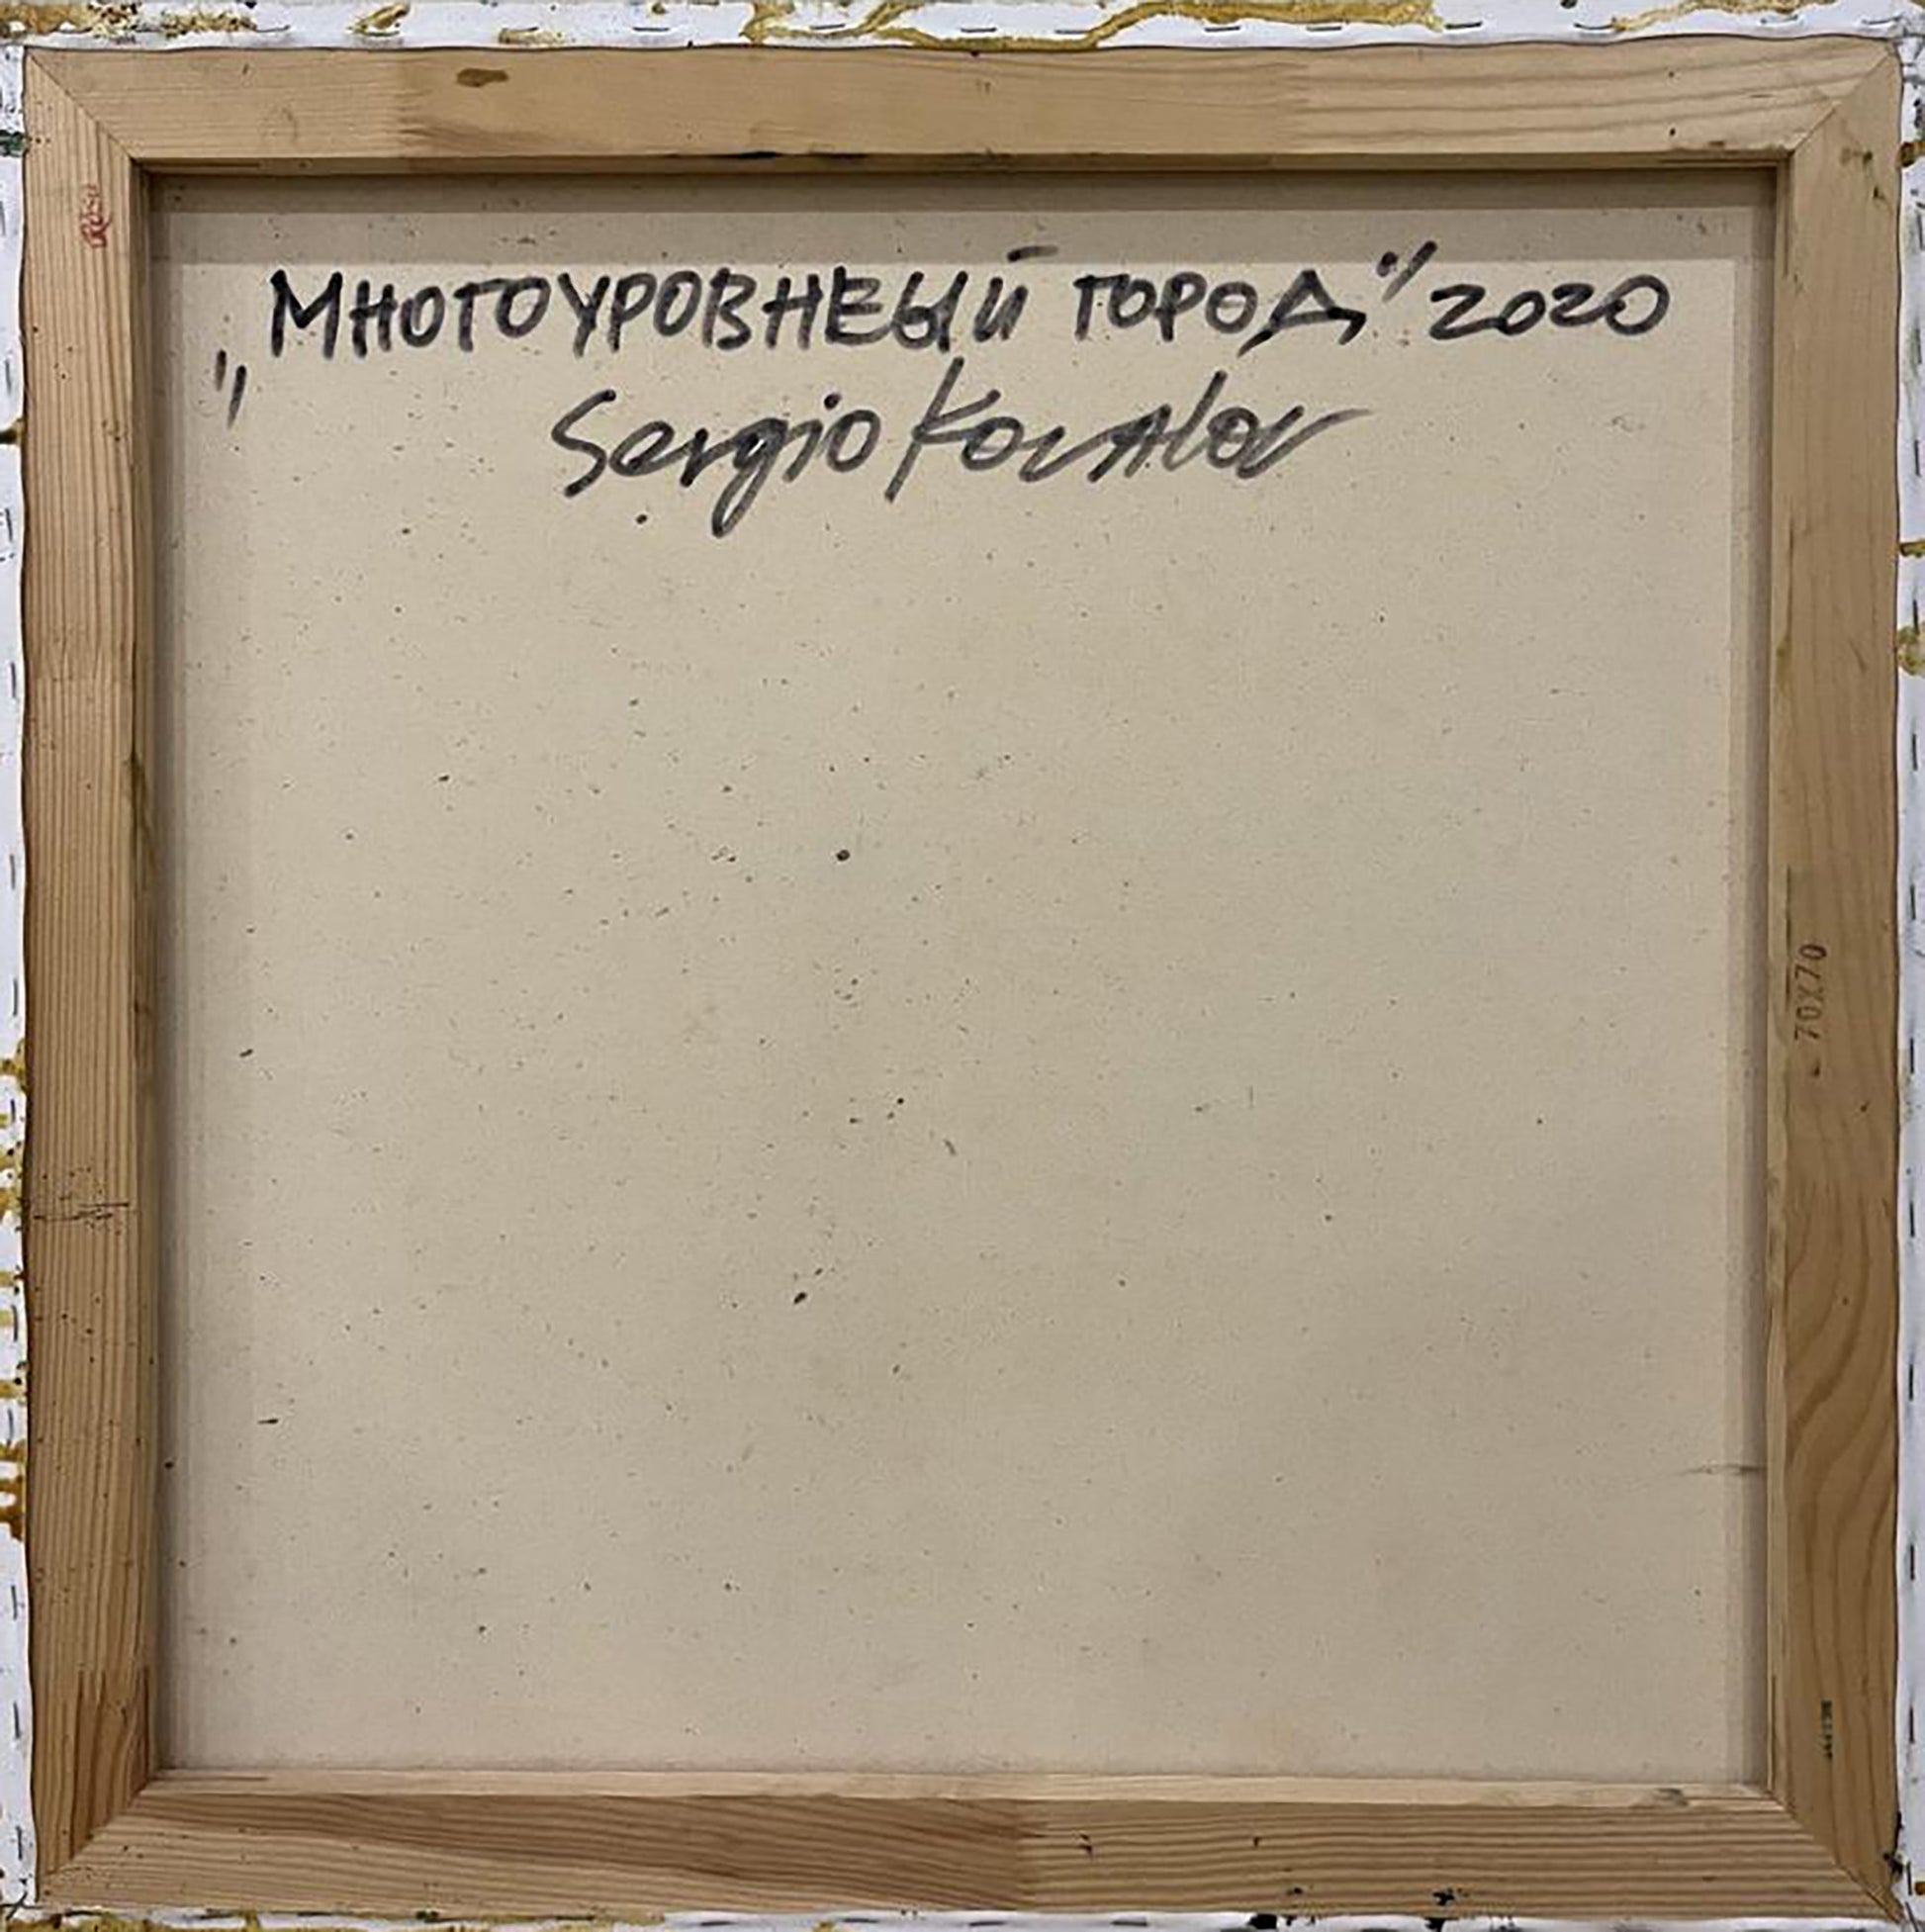 „МНОГОУРОВНЕЫЙ ГОРОД" 2020
Sergio Kovalov
70X70